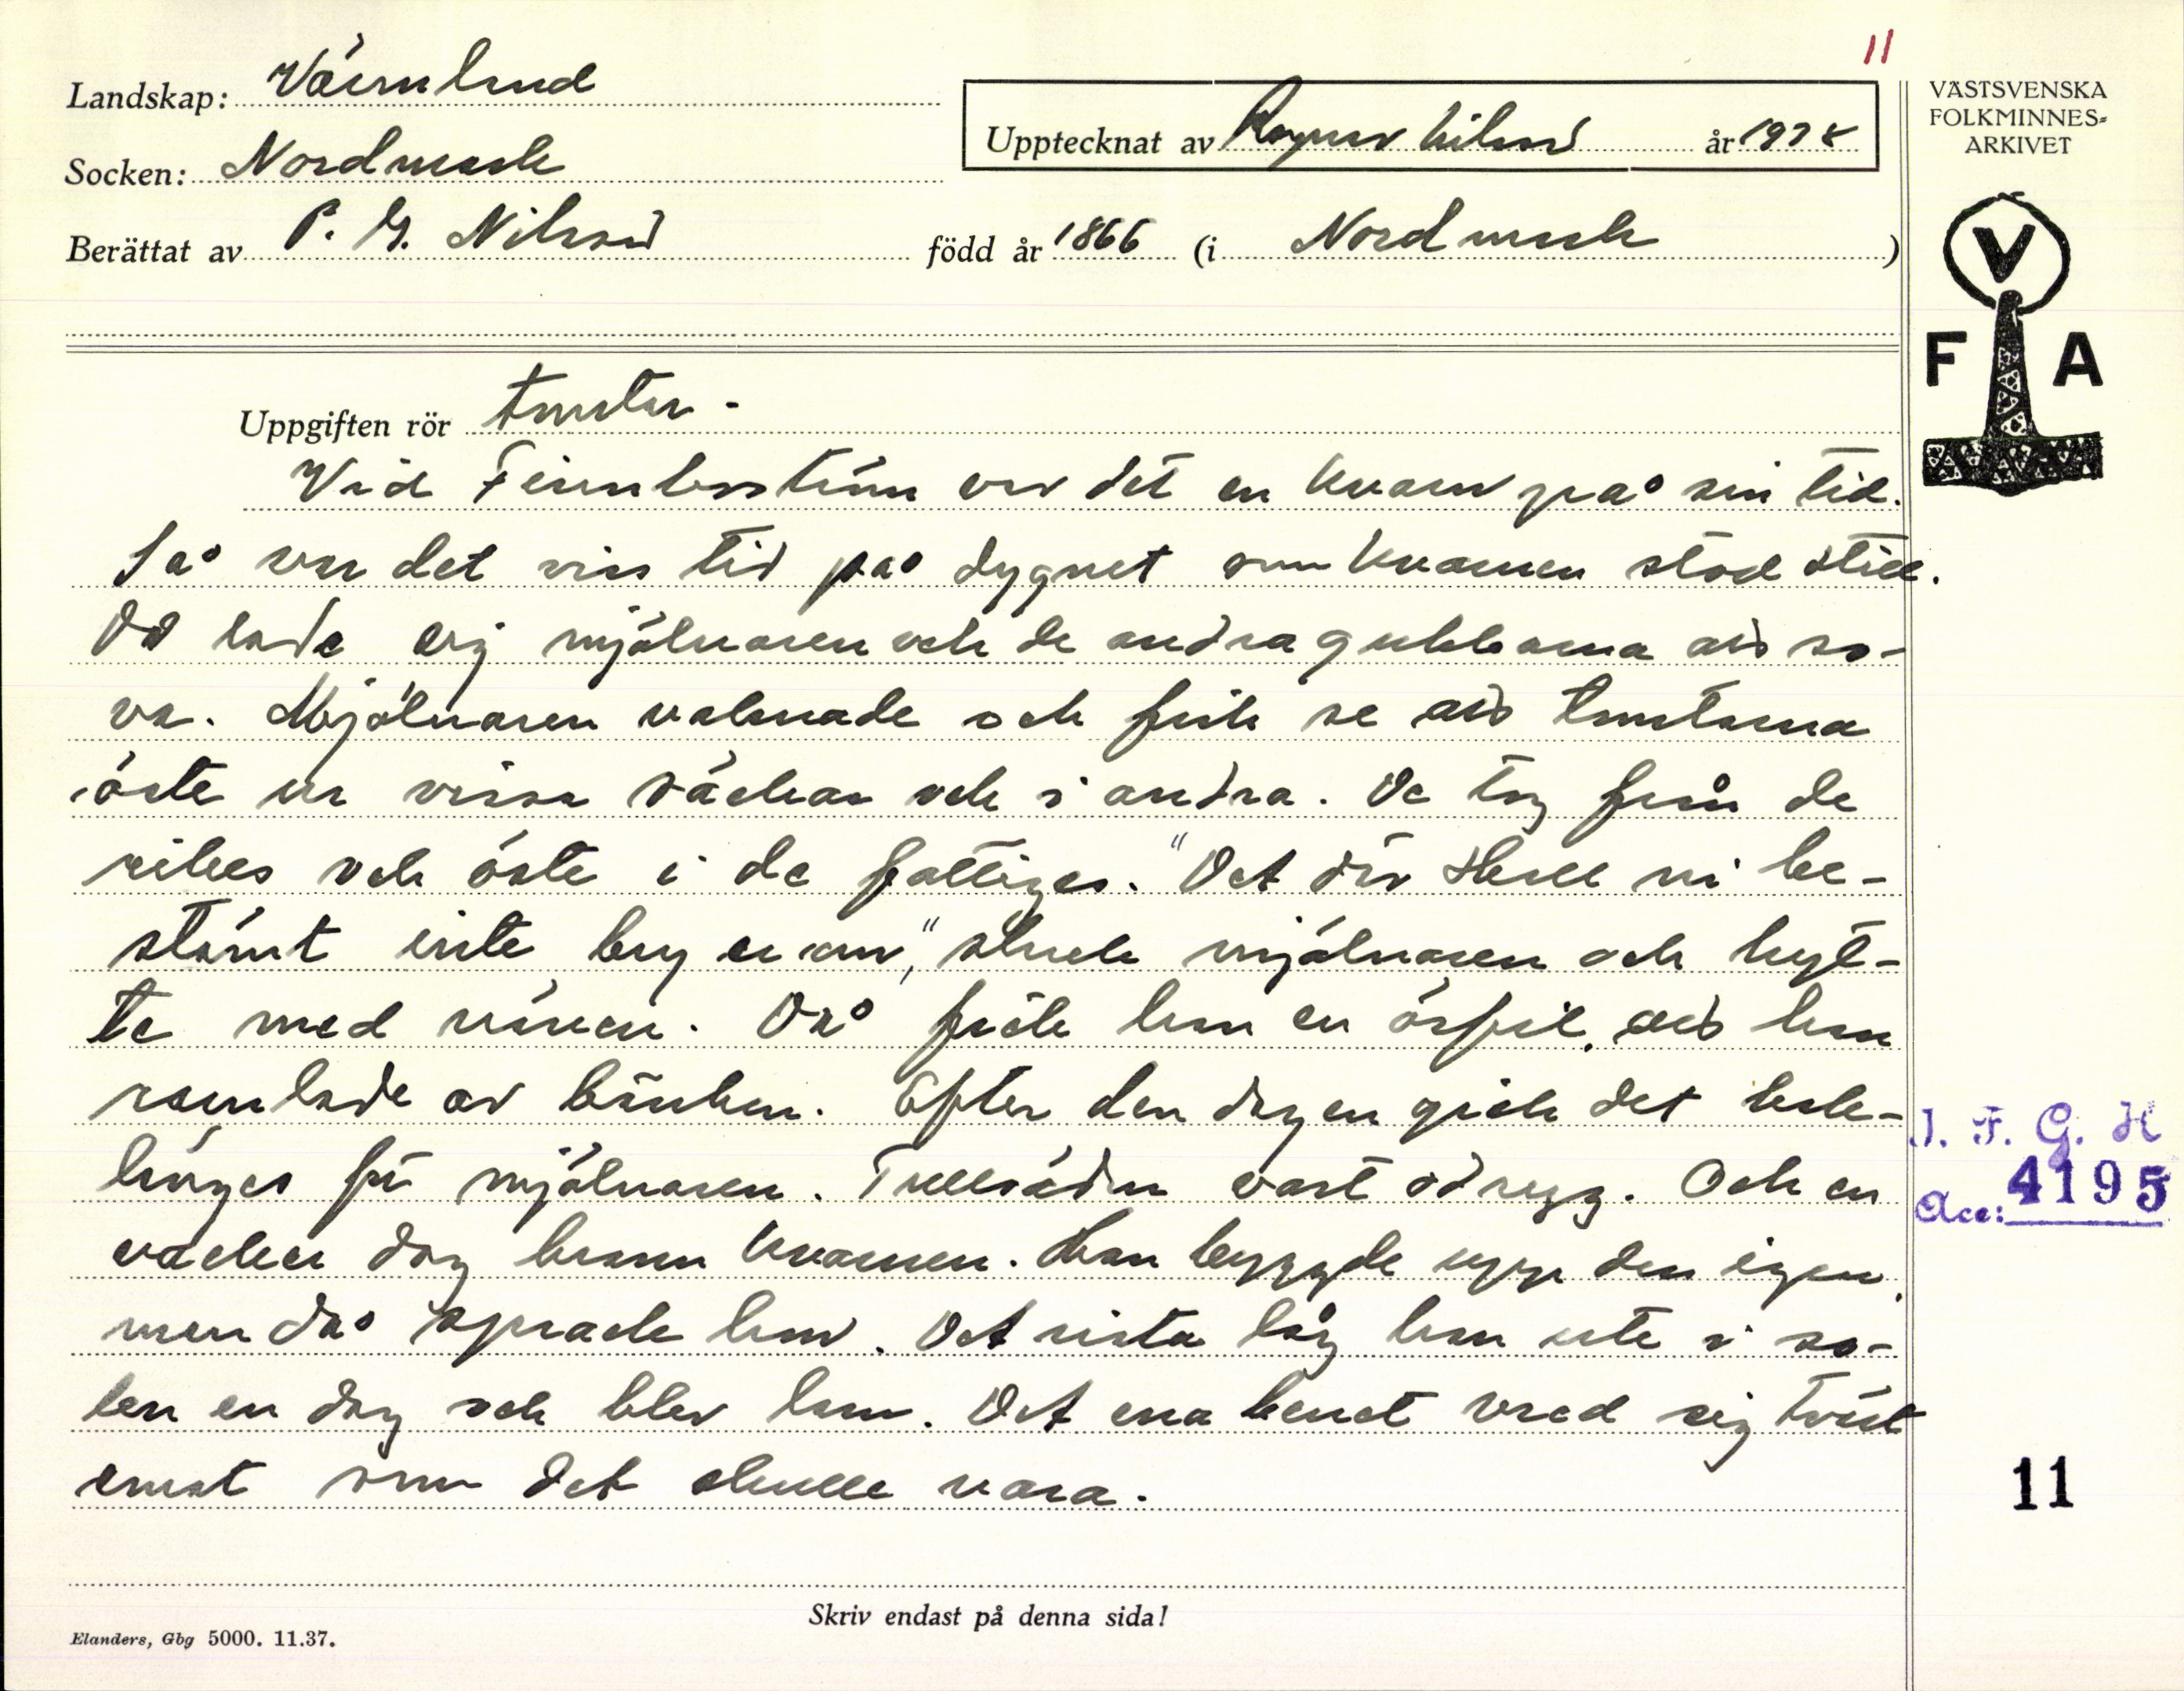 11
Landskap: Värmland
Socken: Nordmark
Upptecknat av Ragnar Nilsson år 1938
Berättat av P. G. Nilsson född år 1866 (i Nordmark)
VÄSTSVENSKA
FOLKMINNES-
ARKIVET
V
F A
Uppgiften rör Tomtar.
Vid tjärn var det en kvarn på sin tid.
Så var det viss tid på dygnet som kvarnen stod still.
Då lade sig mjölnaren och de andra gubbarna att so-
va. Mjölnaren vaknade och fick se att tomtarna
öste ur vissa säckar och i andra. De tog från de
rikes och öste i de fattiges. "Det där skall ni be-
stämt inte bry er om," skrek mjölnaren och hyt-
te med näven. Då fick han en örfil, att han
ramlade av bänken. Efter den dagen gick det bak-
länges för mjölnaren. Tullsäden vart odryg. Och en
vacker dag brann kvarnen. Han byggde upp den igen,
men då sprack han. Det sista låg han ute i so-
len en dag och blev lam. Det ena benet vred sig tvärt
emot som det skulle vara.
I. F. G. H
Acc: 4195
11
Skriv endast på denna sida!
Elanders, Gbg 5000. 11.37.